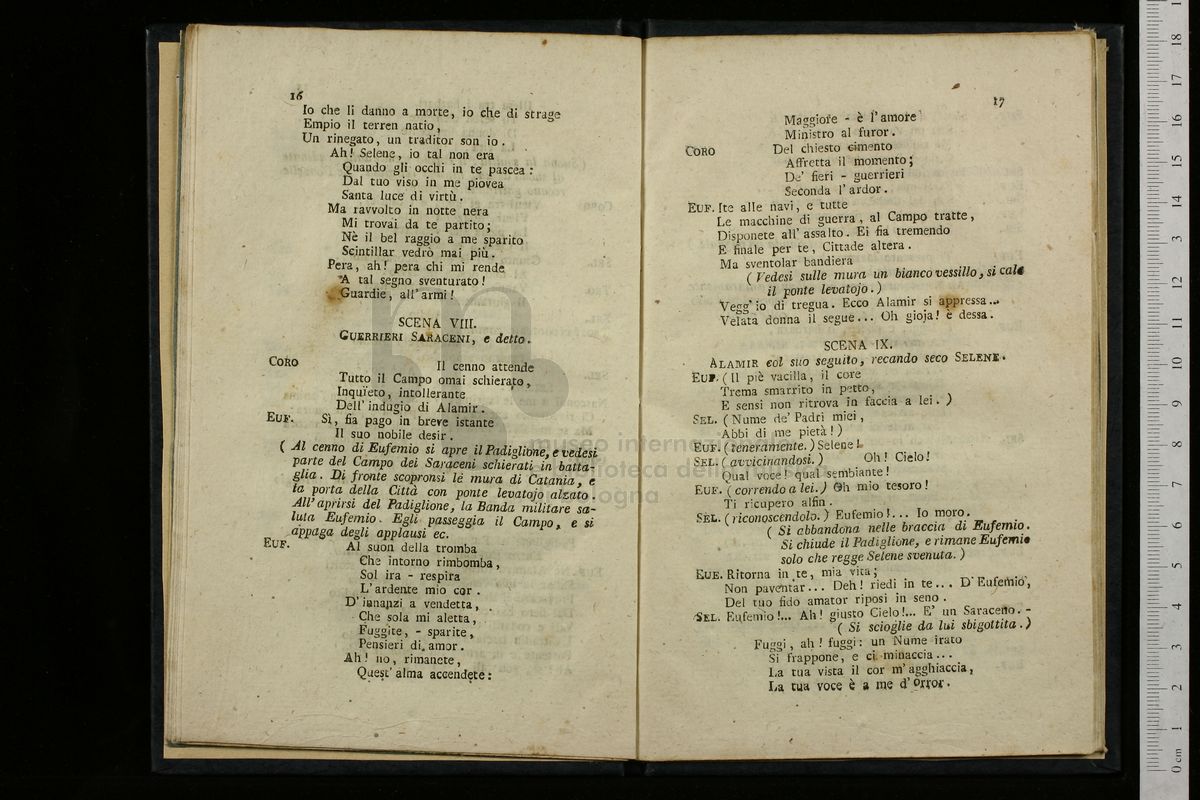 16
Io che li danno a morte, io che di strage
Empio il terren natio,
Un rinegato, un traditor son io.
Ah! Selene, io tal non era
Quando gli occhi in te pascea:
Dal tuo viso in me piovea
Santa luce di virtù.
Ma ravvolto in notte nera
Mi trovai da te partito;
Nè il bel raggio a me sparito
Scintillar vedrò mai più.
Pera, ah! pera chi mi rende
A tal segno sventurato!
Guardie, all'armi!
SCENA VIII.
GUERRIERI SARACENI, e detto.
CORO Il cenno attende
Tutto il Campo omai schierato,
Inquieto, intollerante
Dell'indugio di Alamir.
EUF. Sì, fia pago in breve istante
Il suo nobile desir.
( Al cenno di Eufemio si apre il Padiglione, e vedesi
parte del Campo dei Saraceni schierati in batta-
glia. Di fronte scopronsi le mura di Catania, e
la porta della Città con ponte levatojo alzato.
All'aprirsi del Padiglione, la Banda militare sa-
luta Eufemio. Egli passeggia il Campo, e si
appaga degli applausi ec.
EUF. Al suon della tromba
Che intorno rimbomba,
Sol ira - respira
L'ardente mio cor.
D'innanzi a vendetta,
Che sola mi aletta,
Fuggite, - sparite,
Pensieri di amor.
Ah! no, rimanete,
Quest'alma accendete:
17
Maggiore - è l'amore
Ministro al furor.
CORO Del chiesto cimento
Affretta il momento;
De' fieri - guerrieri
Seconda l'ardor.
EUF. Ite alle navi, e tutte
Le macchine di guerra, al Campo tratte,
Disponete all'assalto. Ei fia tremendo
E finale per te, Cittade altera.
Ma sventolar bandiera
( Vedesi sulle mura un bianco vessillo, si cala
il ponte levatojo.)
Vegg'io di tregua. Ecco Alamir si appressa...
Velata donna il segue... Oh gioja! è dessa.
SCENA IX.
ALAMIR col suo seguito, recando seco SELENE.
EUF. (Il piè vacilla, il core
Trema smarrito in petto,
E sensi non ritrova in faccia a lei.)
SEL. (Nume de' Padri miei,
Abbi di me pietà!)
EUF. (teneramente.) Selene!
SEL. (avvicinandosi.) Oh! Cielo!
Qual voce! qual sembiante!
EUF. (correndo a lei.) Oh mio tesoro!
Ti ricupero alfin.
SEL. (riconoscendolo.) Eufemio!... Io moro.
( Si abbandona nelle braccia di Eufemio.
Si chiude il Padiglione, e rimane Eufemio
solo che regge Selene svenuta.)
EUE. Ritorna in te, mia vita;
Non paventar... Deh! riedi in te... D'Eufemio,
Del tuo fido amator riposi in seno.
SEL. Eufemio!... Ah! giusto Cielo!... E' un Saraceno. -
( Si scioglie da lui sbigottita.)
Fuggi, ah! fuggi: un Nume irato
Si frappone, e ci minaccia...
La tua vista il cor m'agghiaccia,
La tua voce è a me d'orror.